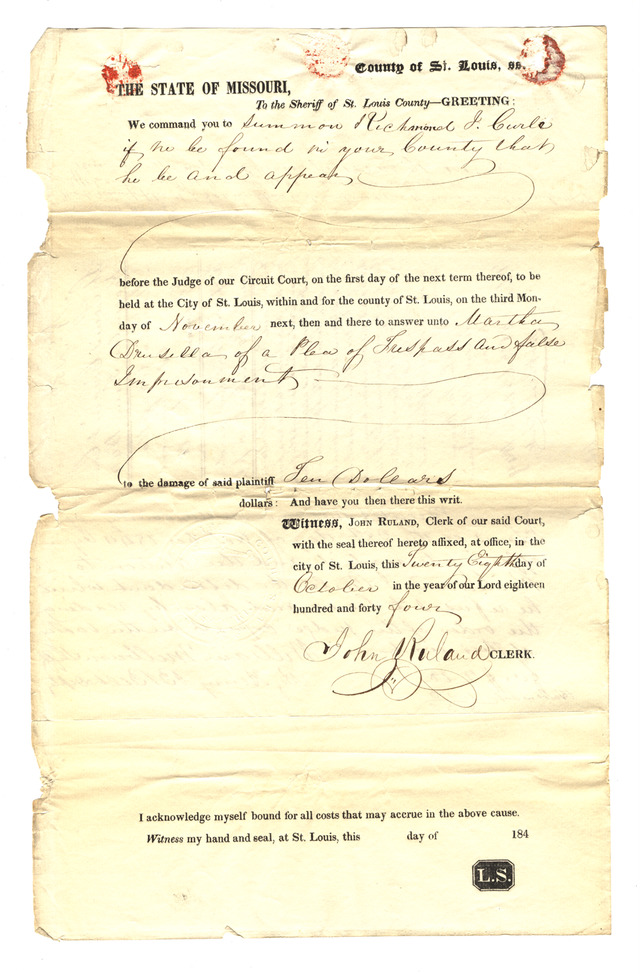 County of St. Louis, ss.
THE STATE OF MISSOURI,
To the Sheriff of St. Louis County—GREETING:
We command you to Summon Richmond J. Curle
if he be found in your County that
he be and appear
before the Judge of our Circuit Court, on the first day of the next term thereof, to be
held at the City of St. Louis, within and for the county of St. Louis, on the third Mon-
day of November next, then and there to answer unto Martha
Drusella of a Plea of Trespass and false
Imprisonment
to the damage of said plaintiff Ten Dollars
dollars: And have you then there this writ.
Witness, JOHN RULAND, Clerk of our said Court,
with the seal thereof hereto affixed, at office, in the
city of St. Louis, this Twenty Eighth day of
October in the year of our Lord eighteen
hundred and forty four
John Ruland CLERK.
I acknowledge myself bound for all costs that may accrue in the above cause.
Witness my hand and seal, at St. Louis, this day of 184
L.S.